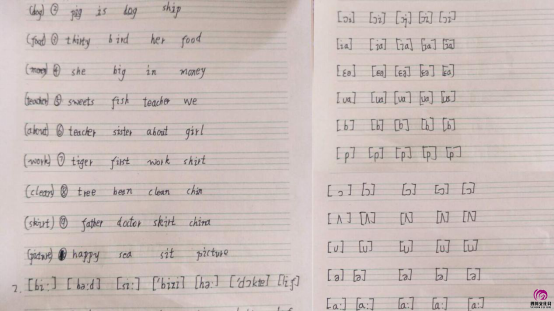 (dog) ③ pig is dog ship
(food) ④ thirty bird her food
she big in money
(teacher) ⑤ sweets fish teacher we
(about) ⑥ teacher sister about girl
(work) ⑦ tiger first work shirt
(clean) ⑧ tree been clean chin
(skirt) ⑨ father doctor skirt china
(picture) happy sea sit picture
2. [bɪ:] [hə:d] [sɪ:] ['bɪzɪ] [hə:] ['dɔktə]
[ɔɪ] [ɔɪ] [ɔɪ] [ɔɪ] [ɔɪ]
[ɪə] [ɪə] [ɪə] [ɪə] [ɪə]
[εə] [εə] [εə] [εə] [εə]
[uə] [uə] [uə] [uə] [uə]
[b] [b] [b] [b] [b]
[p] [p] [p] [p] [p]
[ɔ] [ɔ] [ɔ] [ɔ] [ɔ]
[ʌ] [ʌ] [ʌ] [ʌ] [ʌ]
[u] [u] [u] [u] [u]
[ə] [ə] [ə] [ə] [ə]
[a:] [a:] [a:] [a:] [a:]